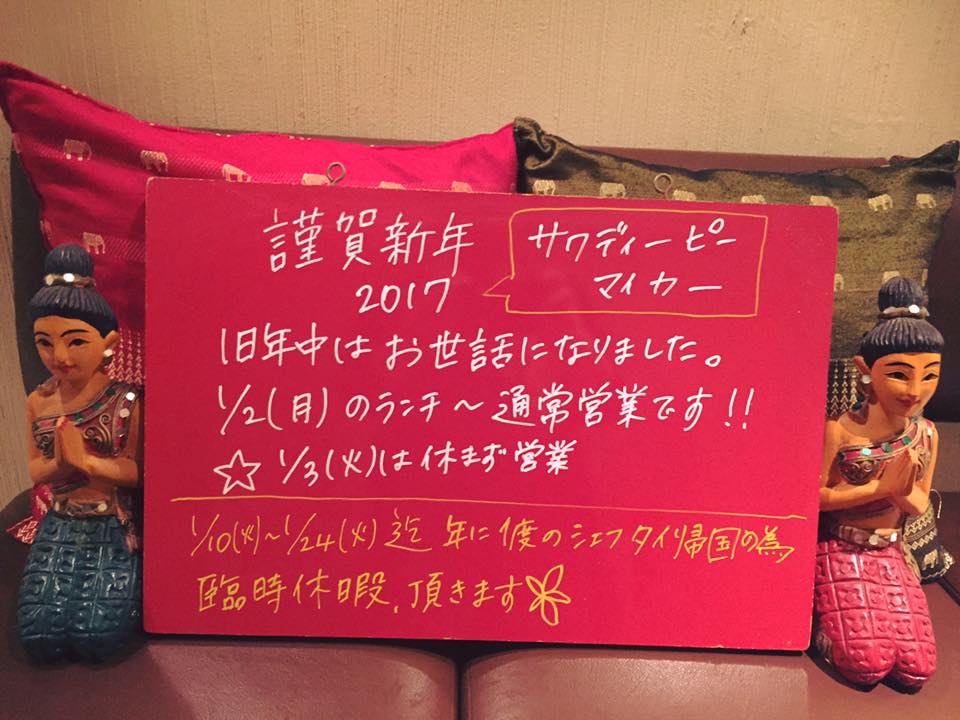 謹賀新年
2017
サワディーピー
マイカー
旧年中はお世話になりました。
1/2(月)のランチ～通常営業です!!
☆1/3(火)は休まず営業
1/10(火)～1/24(火)迄 年に1度のシェフタイ帰国の為
臨時休暇、頂きます